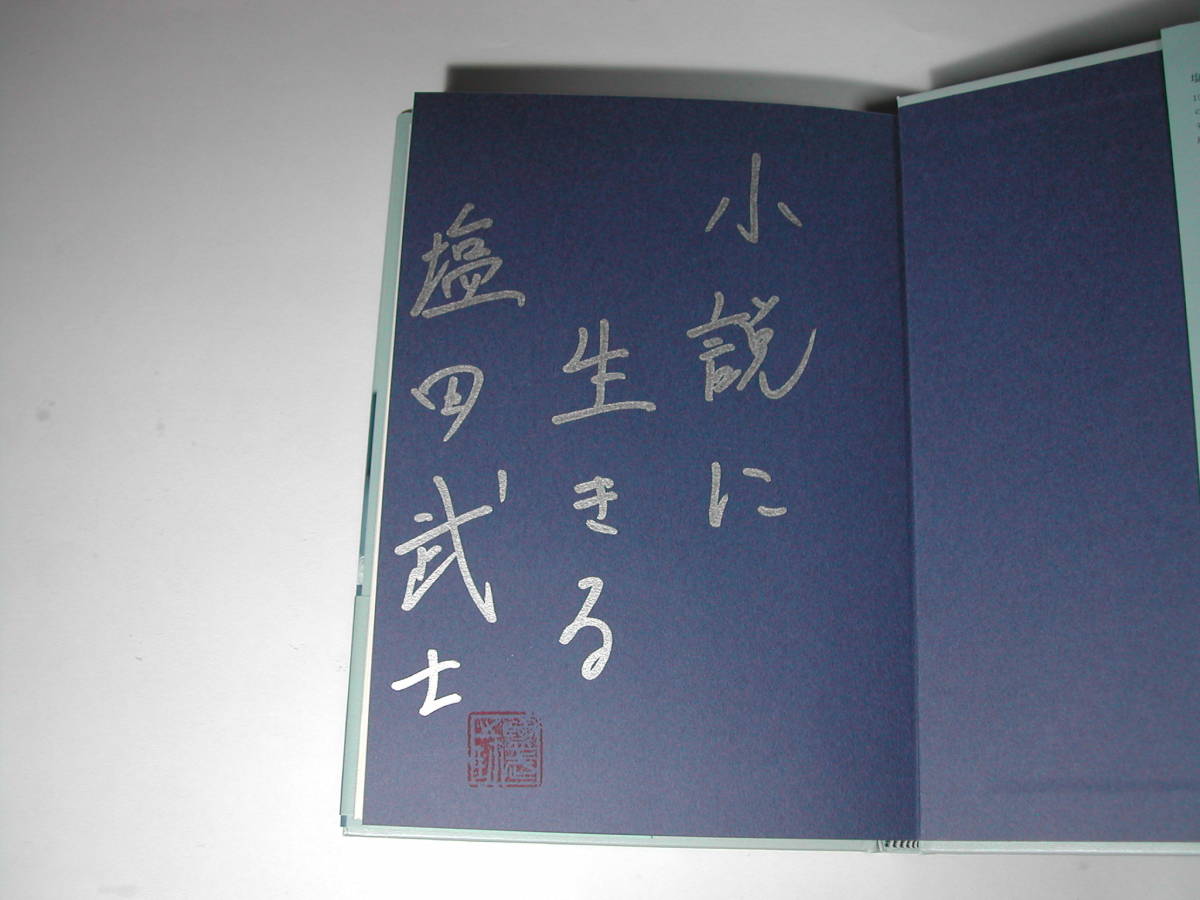 小説に
生きる
塩田武士